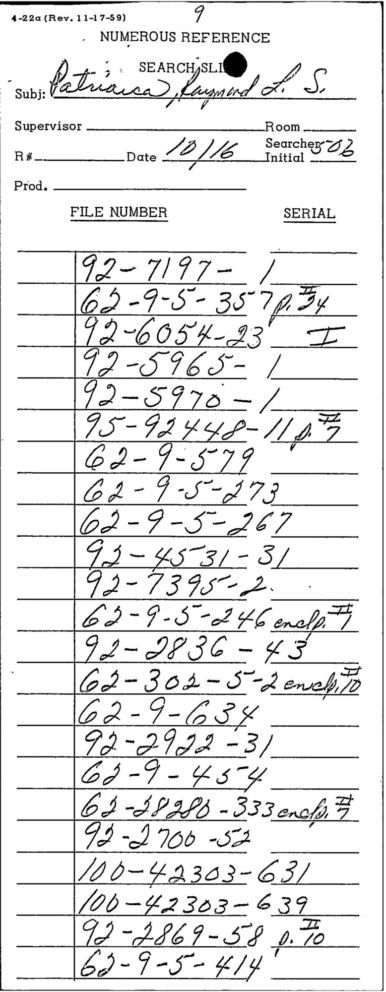 4-22a (Rev. 11-17-59)
9
NUMEROUS REFERENCE
SEARCH SLI
Subj: Patriarca, Raymond L. S.
Supervisor Room
R# Date 10/16 Searcher Initial 506
Prod.
FILE NUMBER SERIAL
92-7197-1
62-9-5-357 p. II 24
92-6054-23 I
92-5965-1
92-5970-1
95-92448-11 p. II 7
62-9-579
62-9-5-273
62-9-5-267
92-4531-31
92-7395-2
62-9-5-246 encl p. II 1
92-2836-43
62-302-5-2 encl p. II 10
62-9-634
92-2922-31
62-9-454
62-28280-333 encl p. II 7
92-2700-52
100-42303-631
100-42303-639
92-2869-58 p. II 10
62-9-5-414